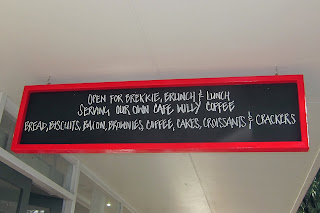 OPEN FOR BREKKIE, BRUNCH & LUNCH
SERVING OUR OWN CAFE WILLY COFFEE
BREAD, BISCUITS, BACON, BROWNIES, COFFEE, CAKES, CROISSANTS & CRACKERS